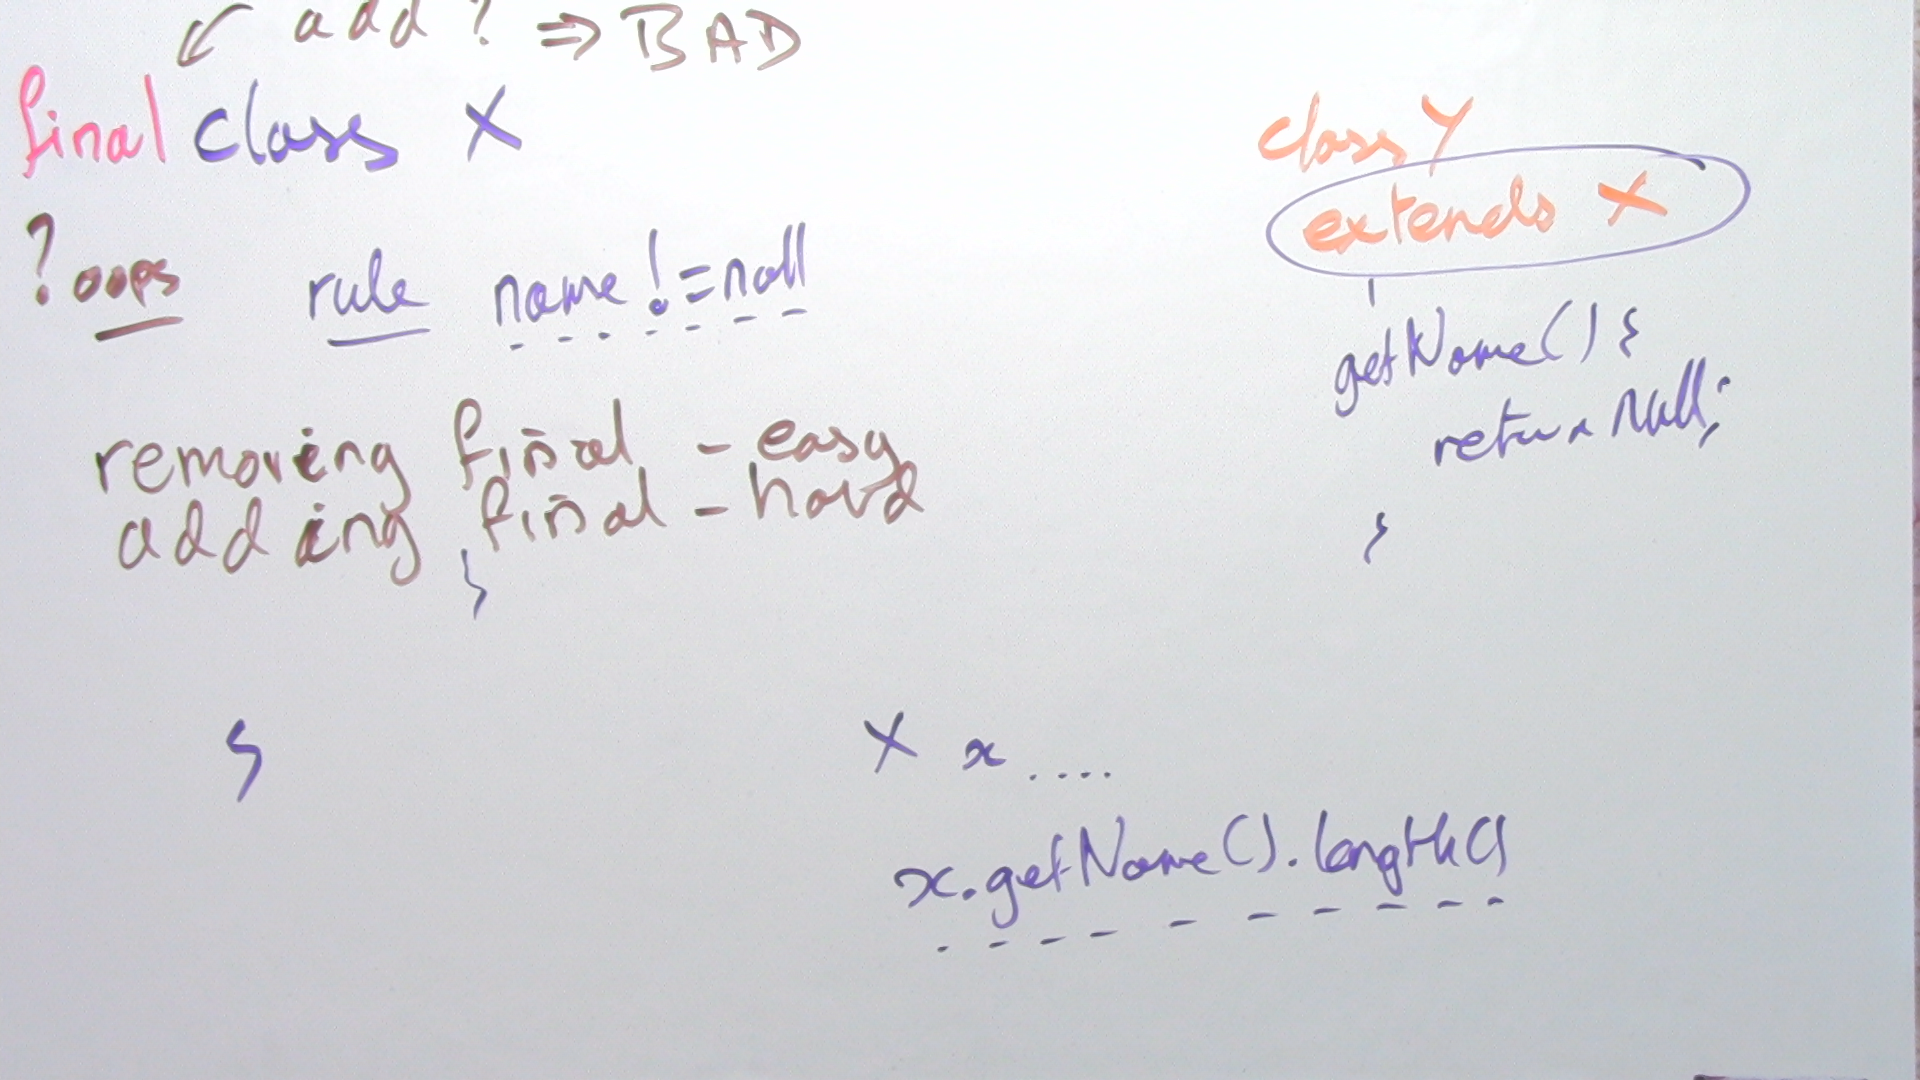 add? ⇒ BAD
final class X
? oops rule name != null
removing final - easy
adding final - hard
}
}
class Y
extends X
getName() {
return null;
}
X x ....
x.getName().length()